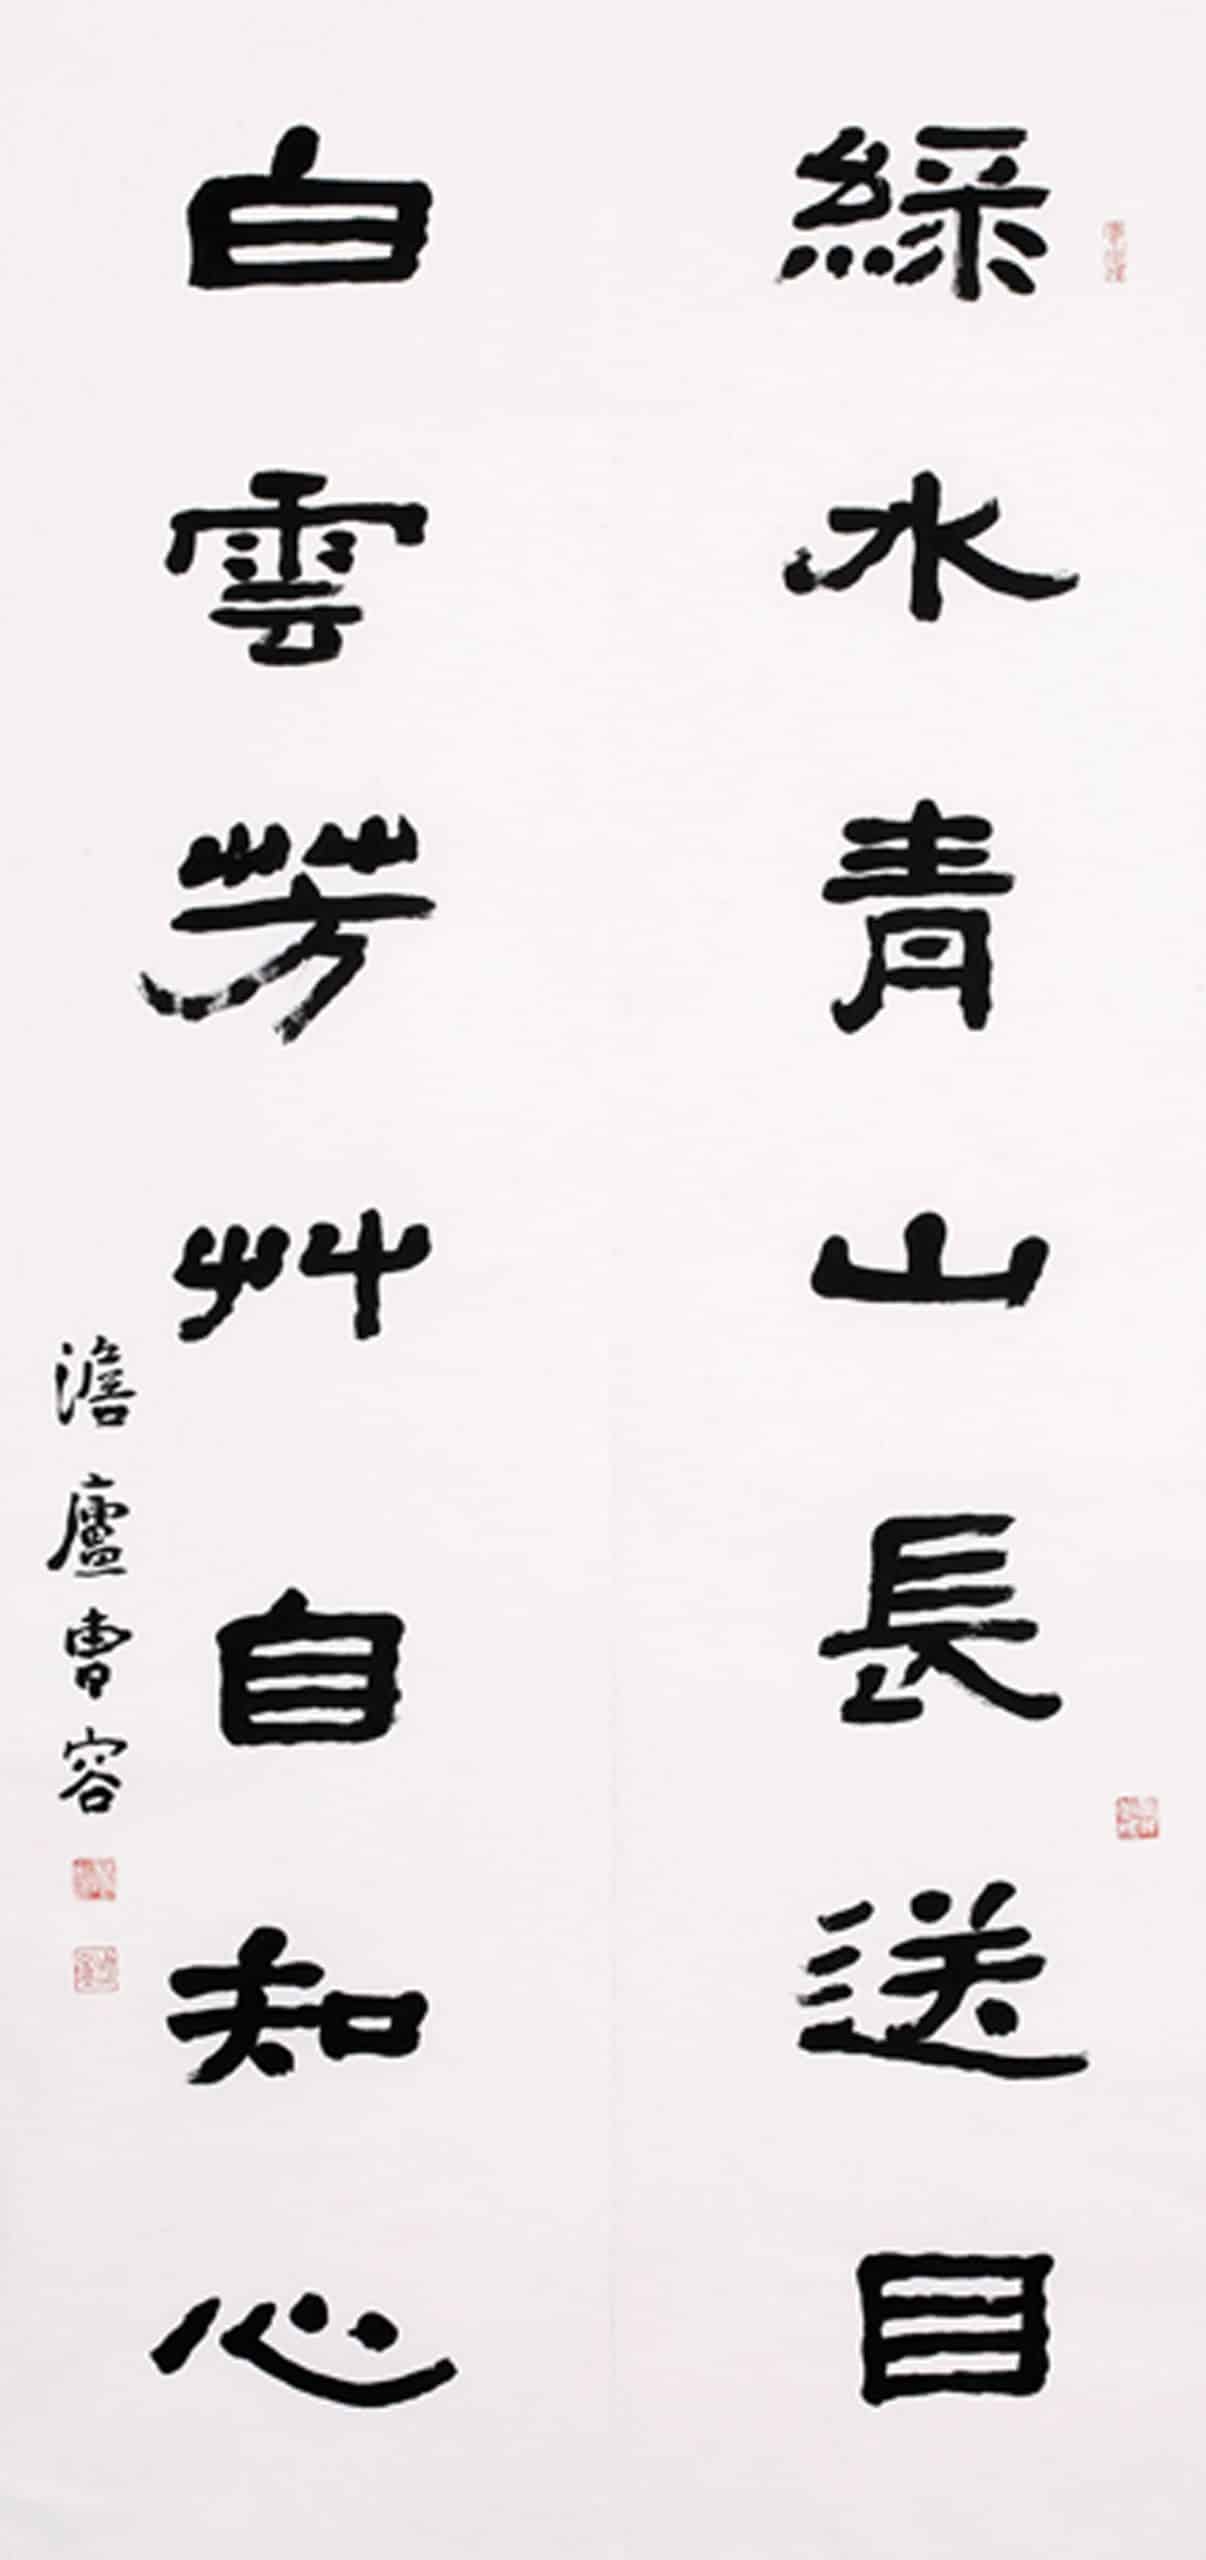 綠水青山長送目
白雲芳艸自知心
澹廬曹容